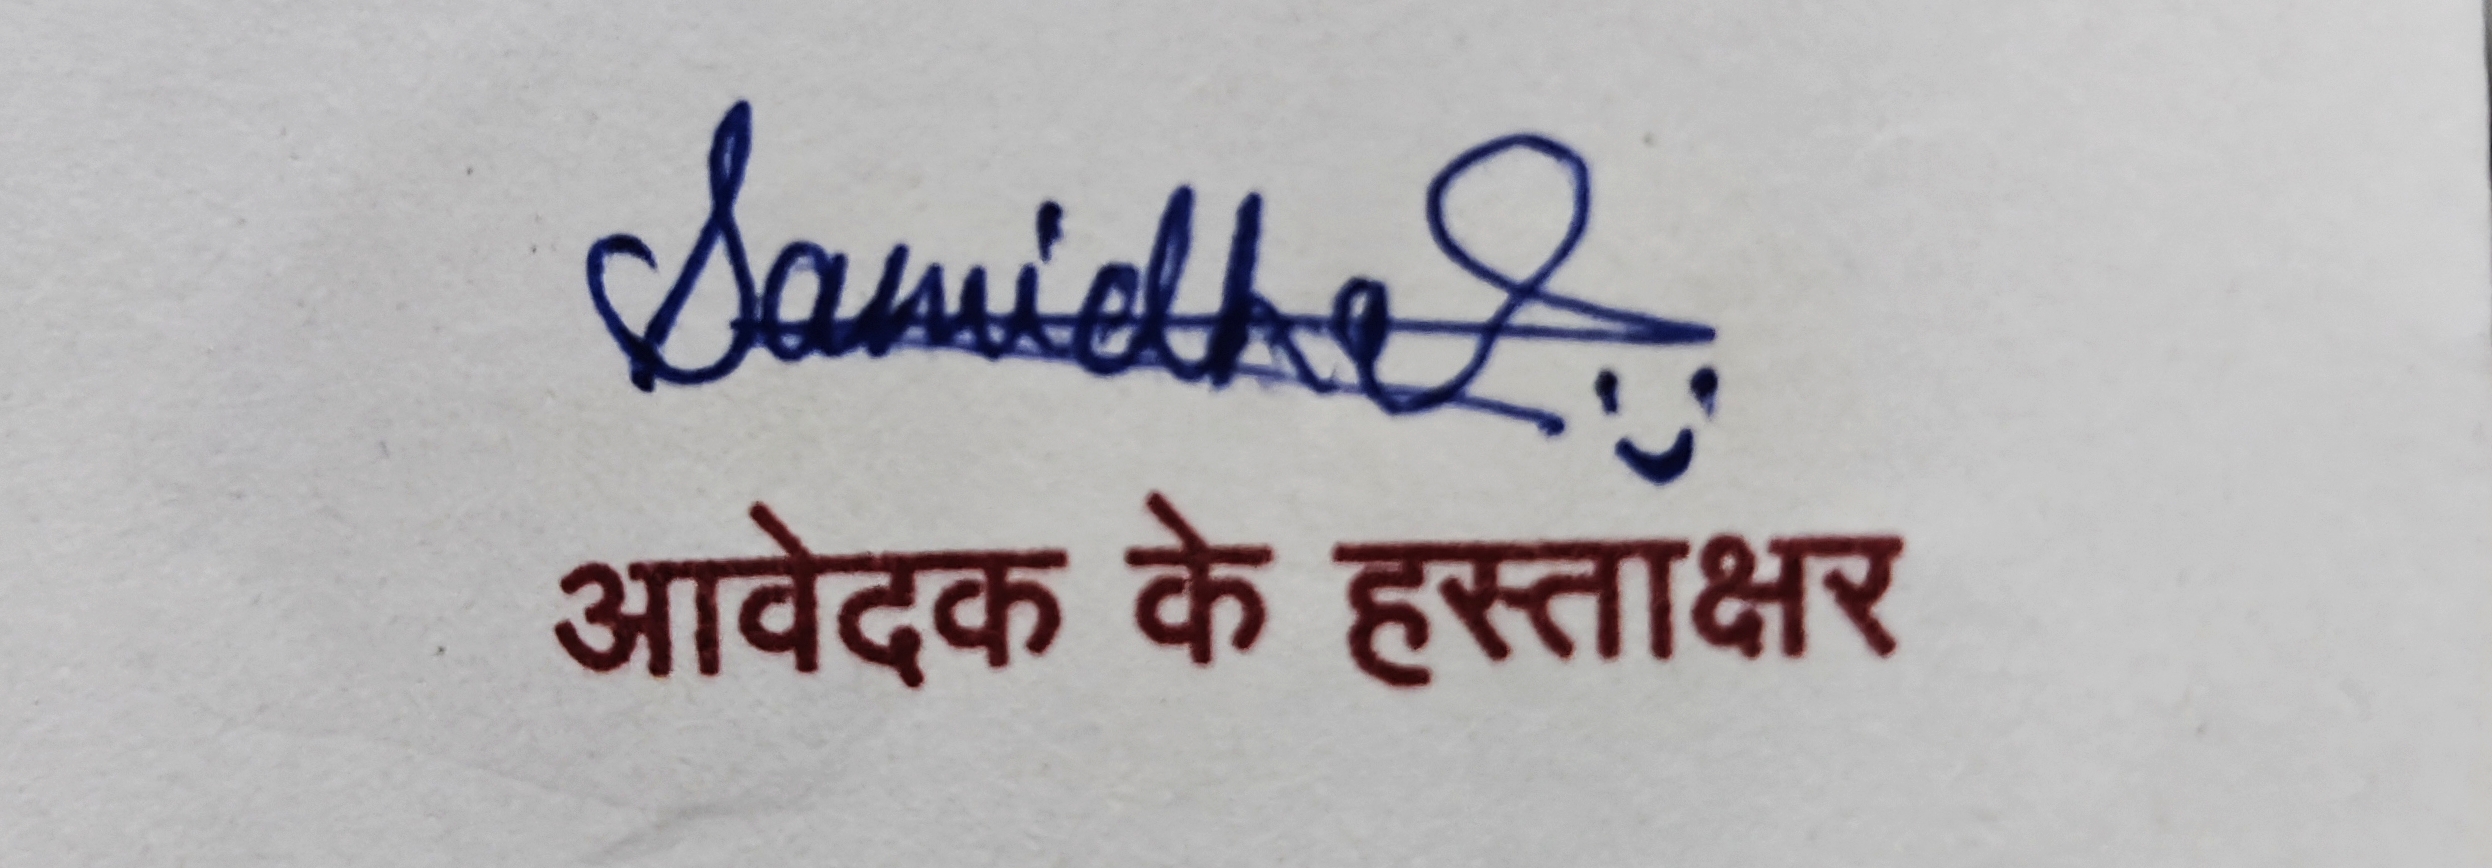 Samidha
आवेदक के हस्ताक्षर